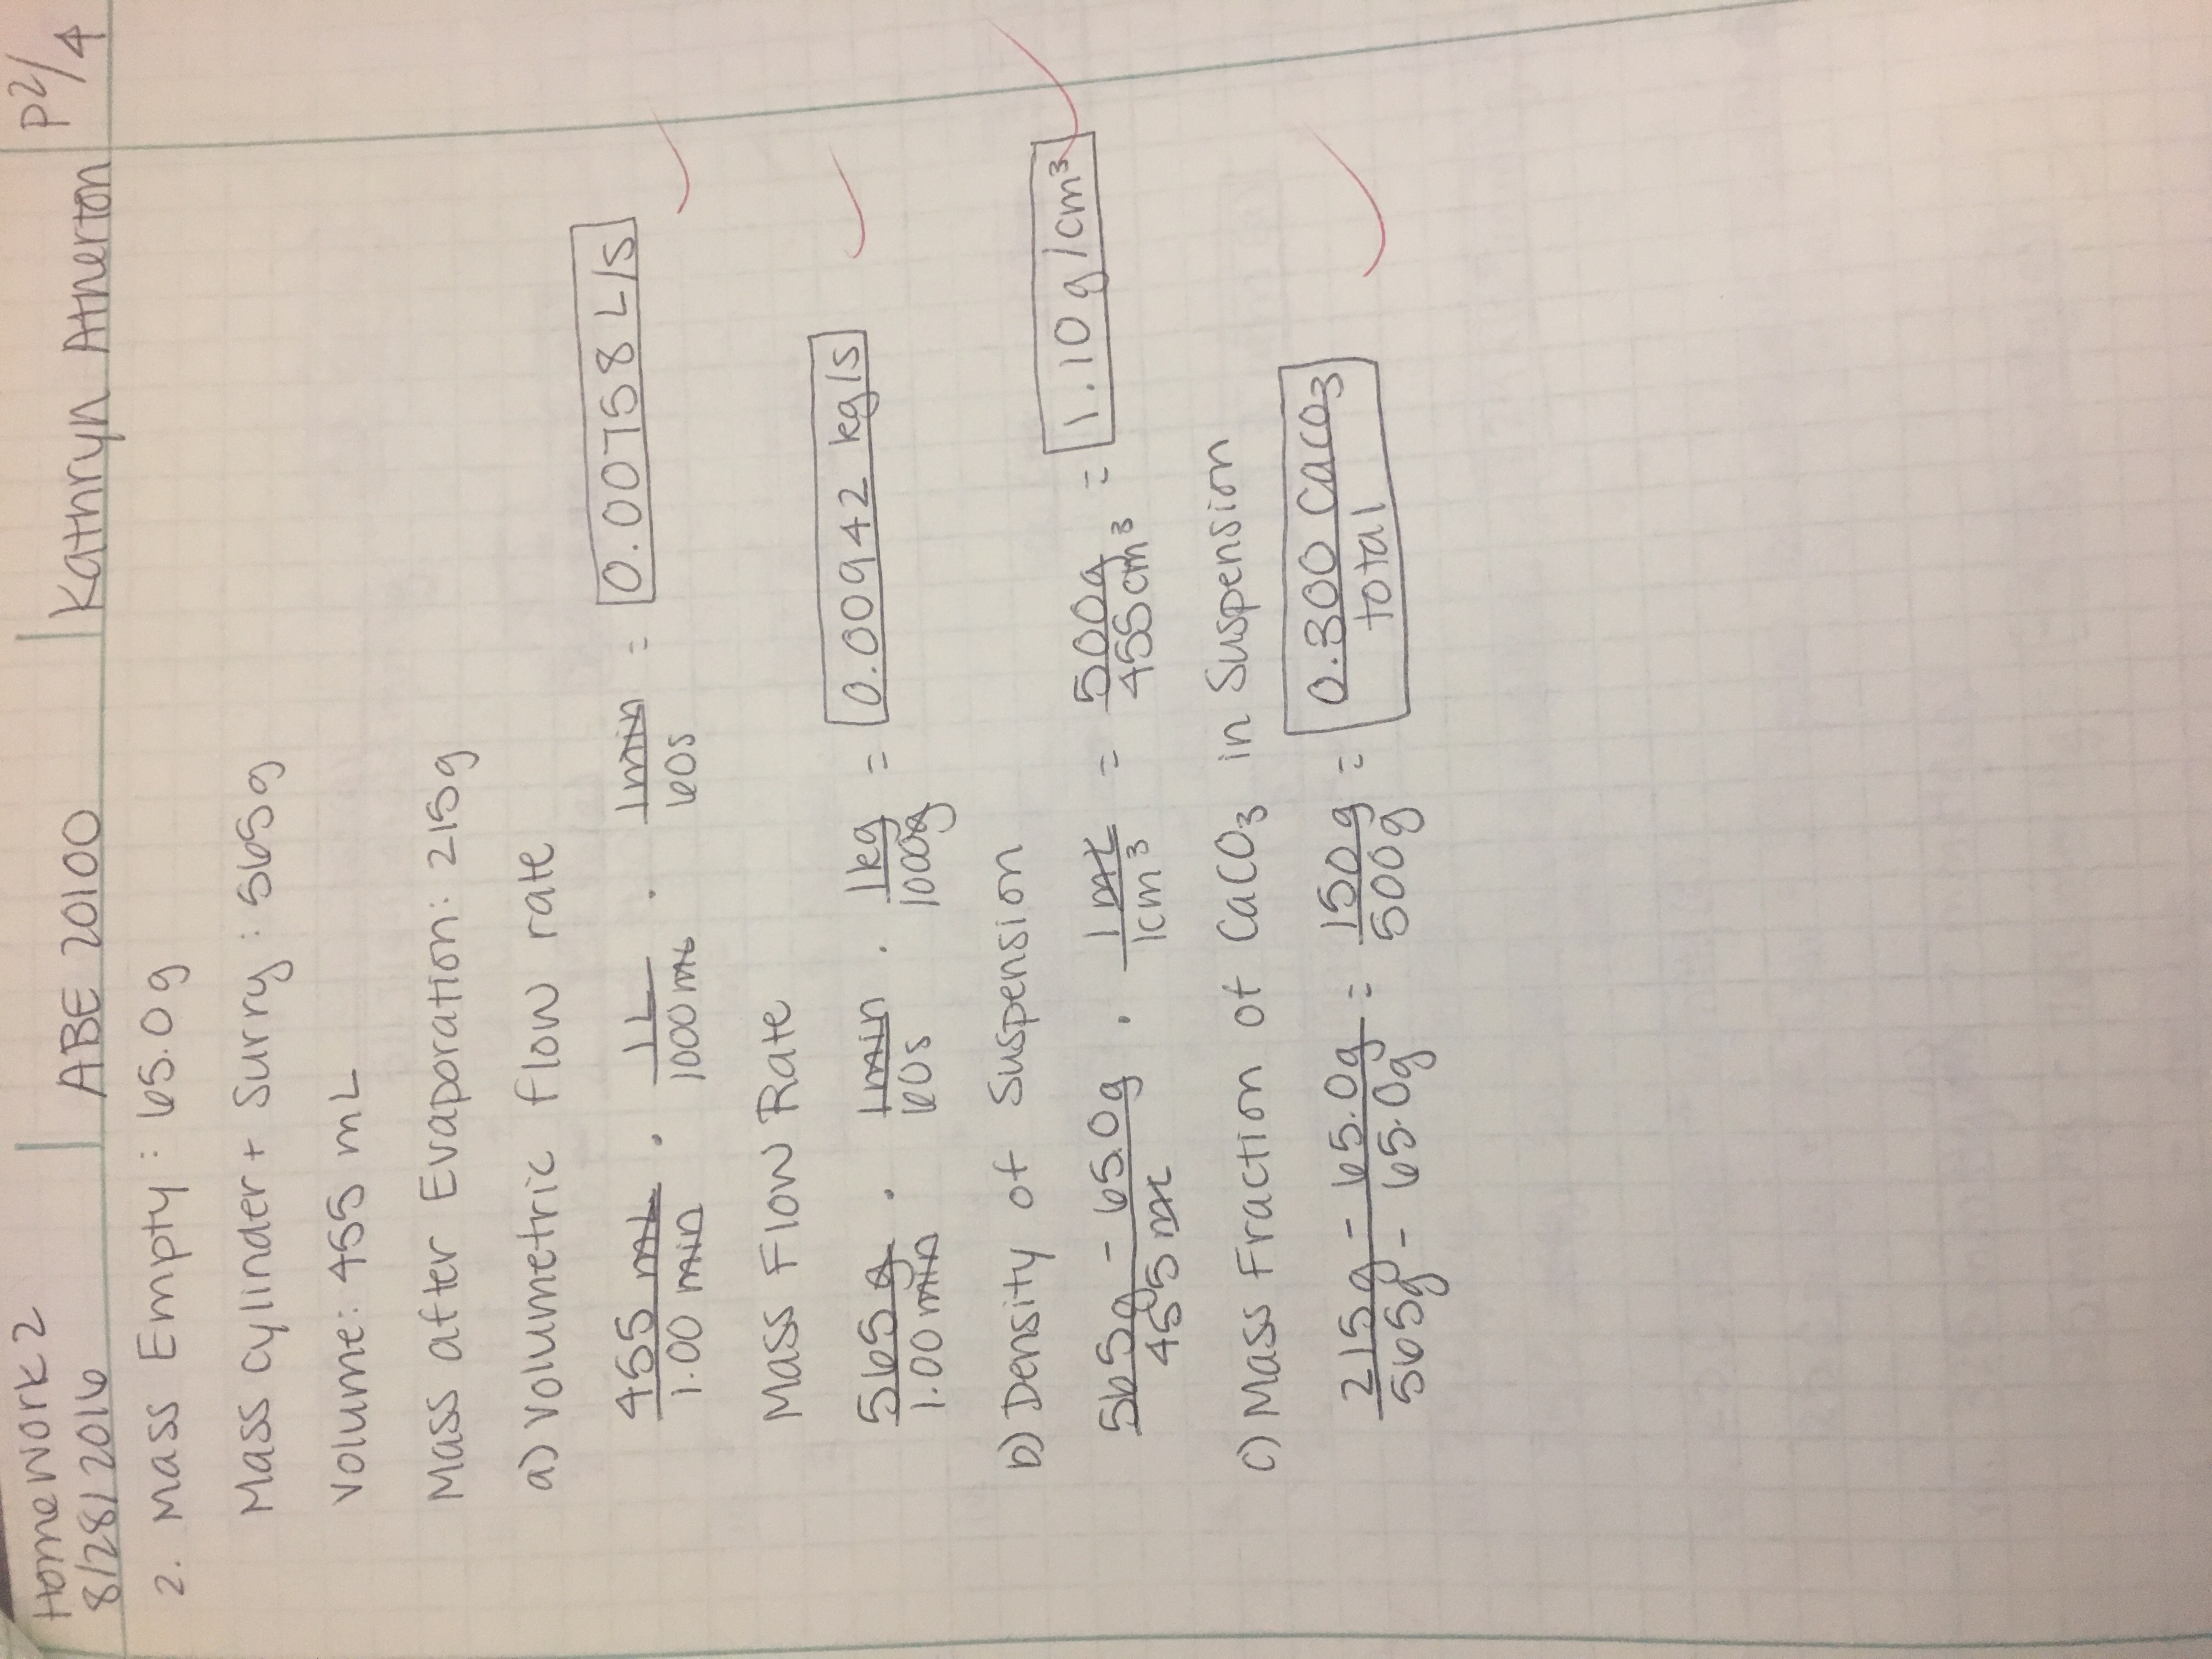 Homework 2
8/28/2016
ABE 20100
Kathryn Atherton
P2/4
2. Mass Empty: 65.0g
Mass cylinder + Surry: 565g
Volume: 455 mL
Mass after Evaporation: 215g
a) Volumetric flow rate
455 mL / 1.00 min · 1L / 1000 mL · 1min / 60s = 0.00758 L/s
Mass Flow Rate
565g / 1.00 min · 1min / 60s · 1kg / 1000g = 0.00942 kg/s
b) Density of Suspension
565g - 65.0g / 455 mL · 1 mL / 1cm³ = 500g / 455cm³ = 1.10 g/cm³
c) Mass Fraction of CaCO₃ in Suspension
215g - 65.0g / 565g - 65.0g = 150g / 500g = 0.300 CaCO₃ / total